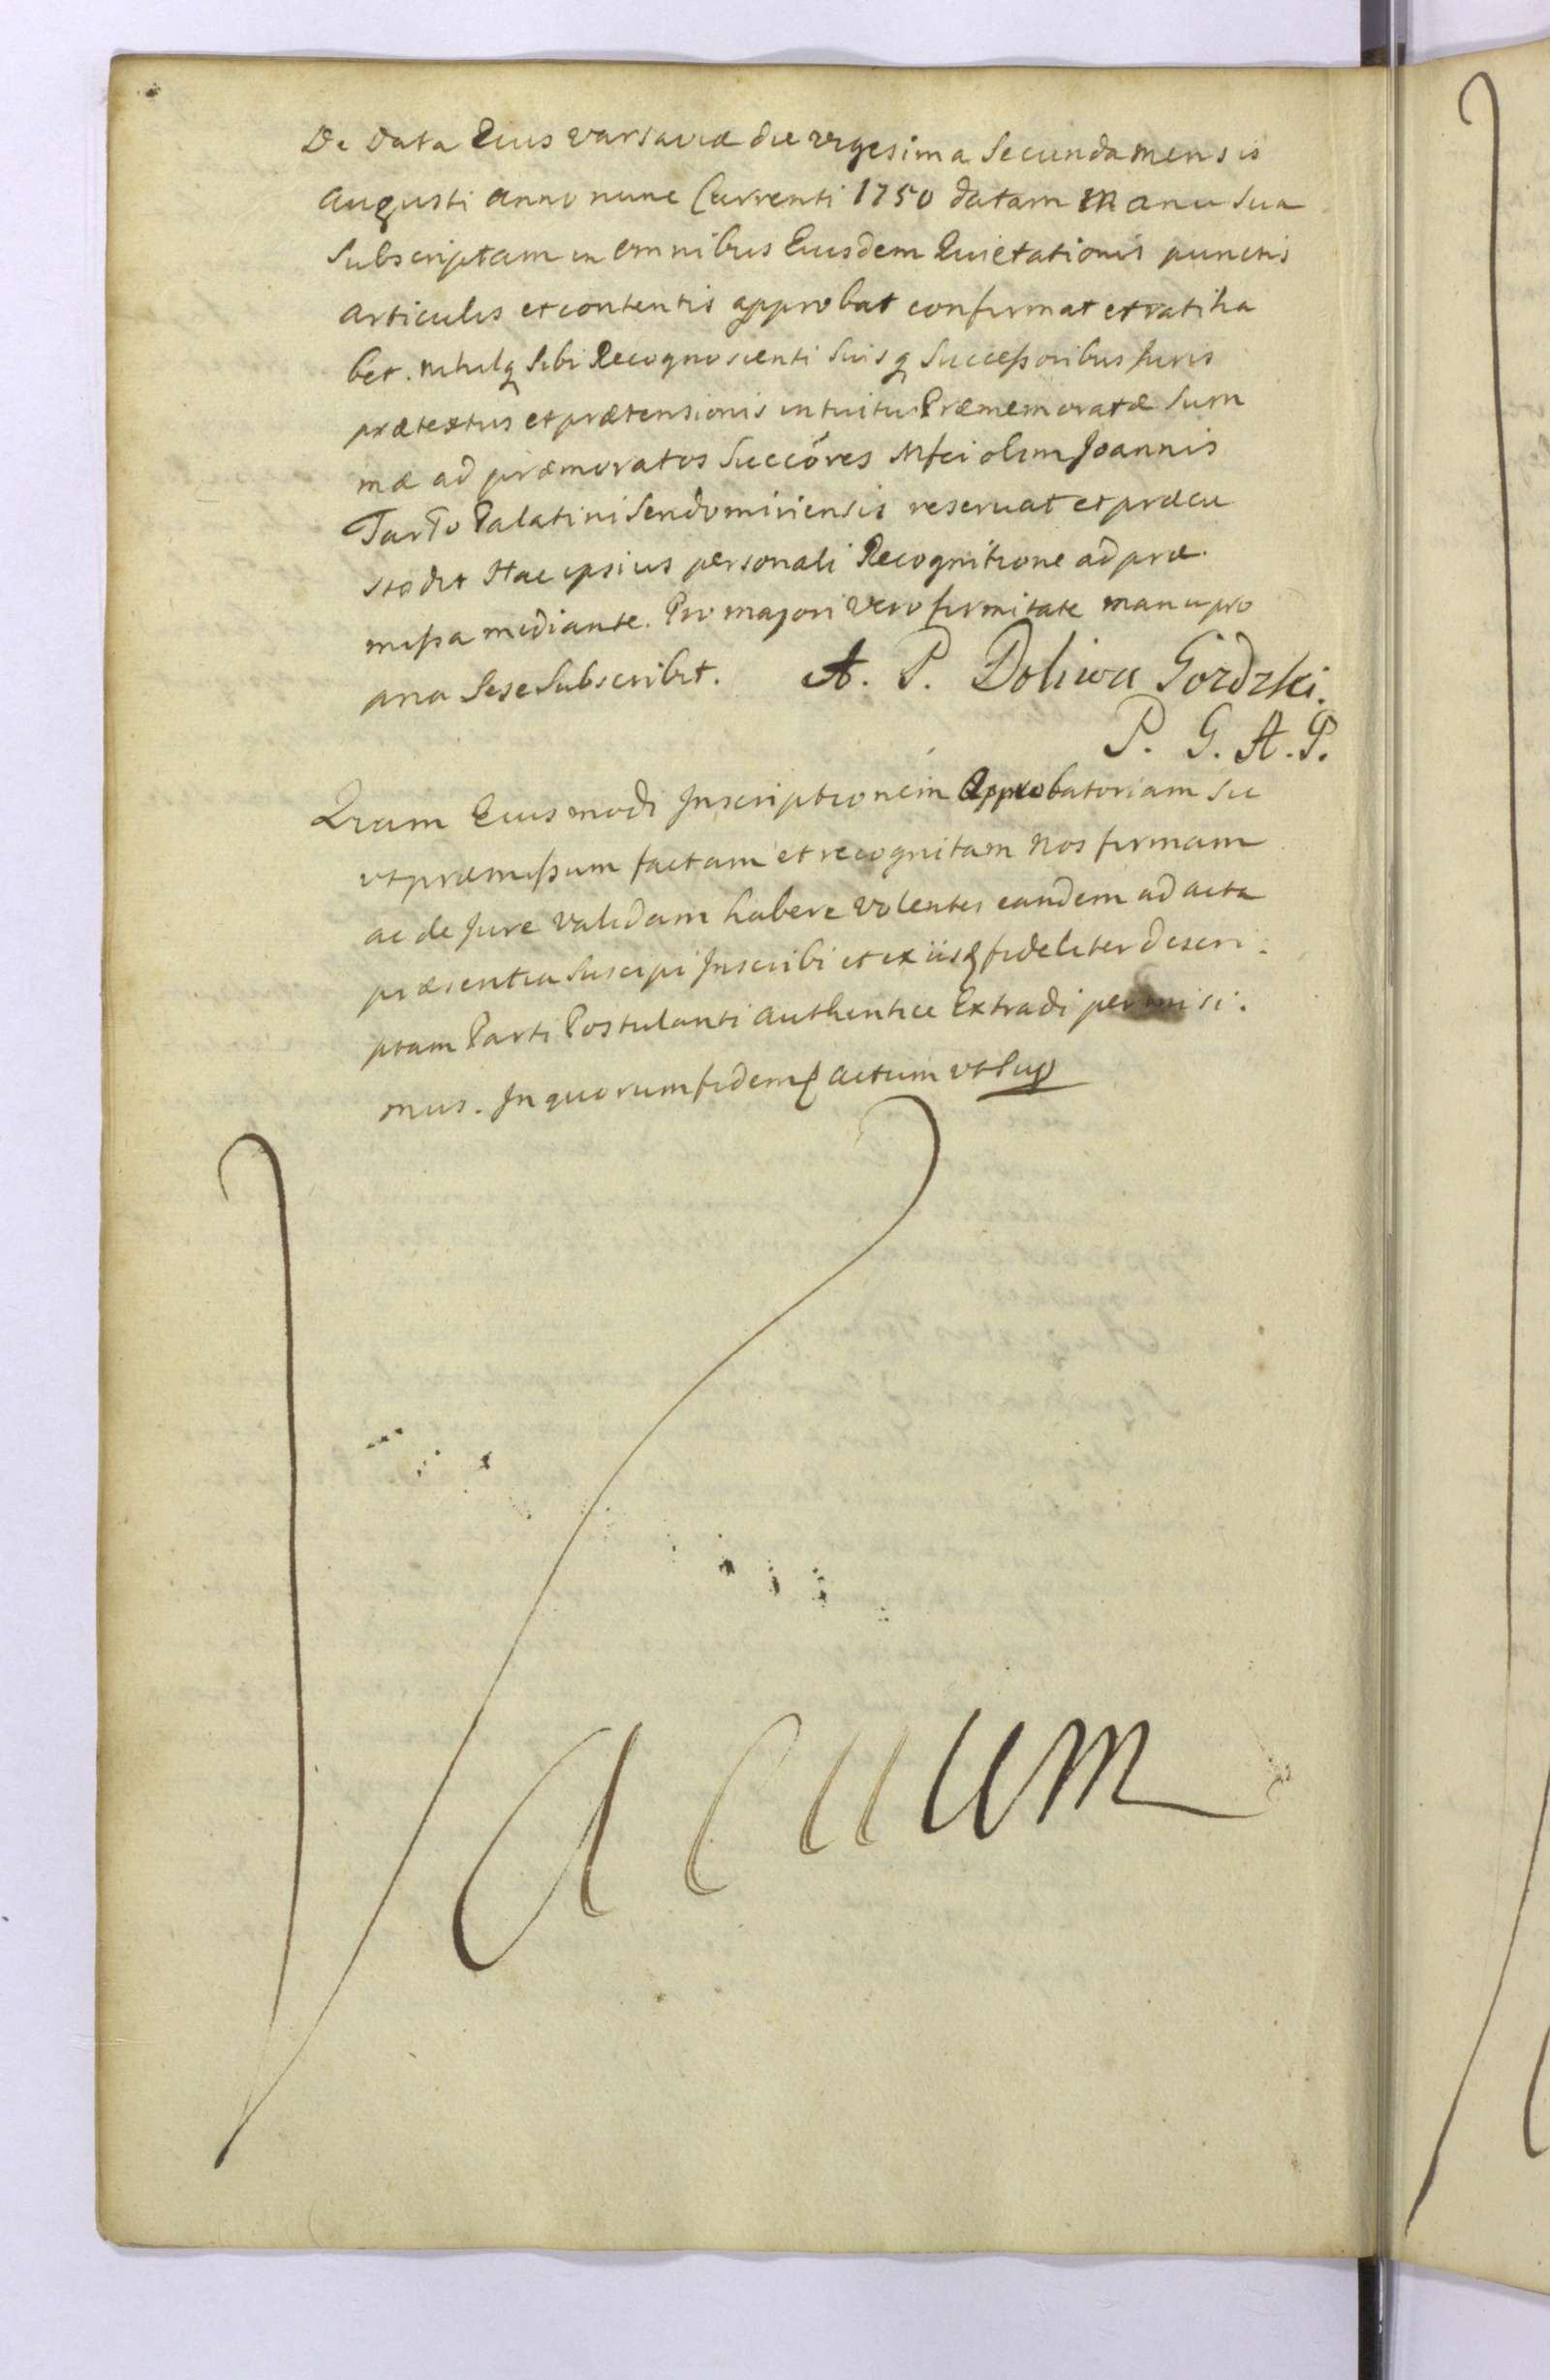 De Data Eius Varsaviæ die vigesima Secunda mensis
Augusti anno nunc Currenti 1750 datam Manu Sua
Subscriptam in omnibus Eiusdem Quietationis punctis
articulis et contentis approbat confirmat et ratiha
bet. nihilq Sibi Recognoscenti Suisq Successoribus Juris
prætextus et prætensionis intuitu Præmemoratæ Sum
mæ ad præmoratos Succõres Mfci olim Joannis
Tarło Palatini Sendomiriensis reservat et præcu
stodit Hac ipsius personali Recognitione ad præ
missa mediante. Pro majori vero firmitate manu pro
pria Sese Subscribit. A. P. Doliwa Gozdzki.
P. G. A. P.
Quam Eiusmodi Inscriptionem Approbatoriam Sic
vt præmissum factam et recognitam Nos firmam
ac de Jure validam habere volentes eandem ad acta
præsentia Suscipi Inscribi et ex iisq fideliter descri:
ptam Parti Postulanti authentice Extradi permisi:
mus. In quorum fidemq actum vt Sup
Vacuum